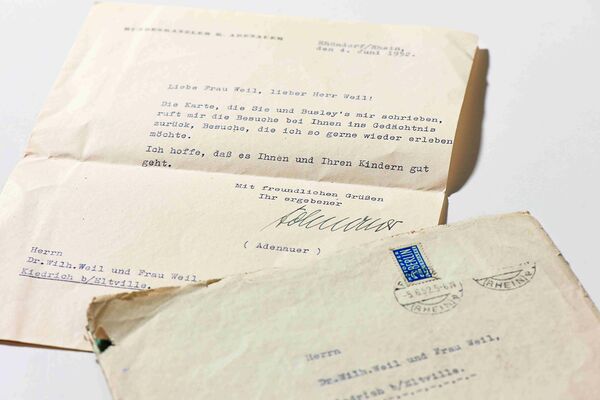 BUNDESKANZLER K. ADENAUER
Rhöndorf/Rhein,
den 4. Juni 1952.
Liebe Frau Weil, lieber Herr Weil!
Die Karte, die Sie und Busley's mir schrieben,
ruft mir die Besuche bei Ihnen ins Gedächtnis
zurück, Besuche, die ich so gerne wieder erleben
möchte.
Ich hoffe, daß es Ihnen und Ihren Kindern gut
geht.
Mit freundlichen Grüßen
Ihr ergebener
Adenauer
( Adenauer )
Herrn
Dr.Wilh.Weil und Frau Weil
Kiedrich b/Eltville.
BERLIN
-5.6.52.5-6
(RHEIN)
(RHEIN)
Herrn
Dr.Wilh.Weil und Frau Weil,
Kiedrich b/Eltville.